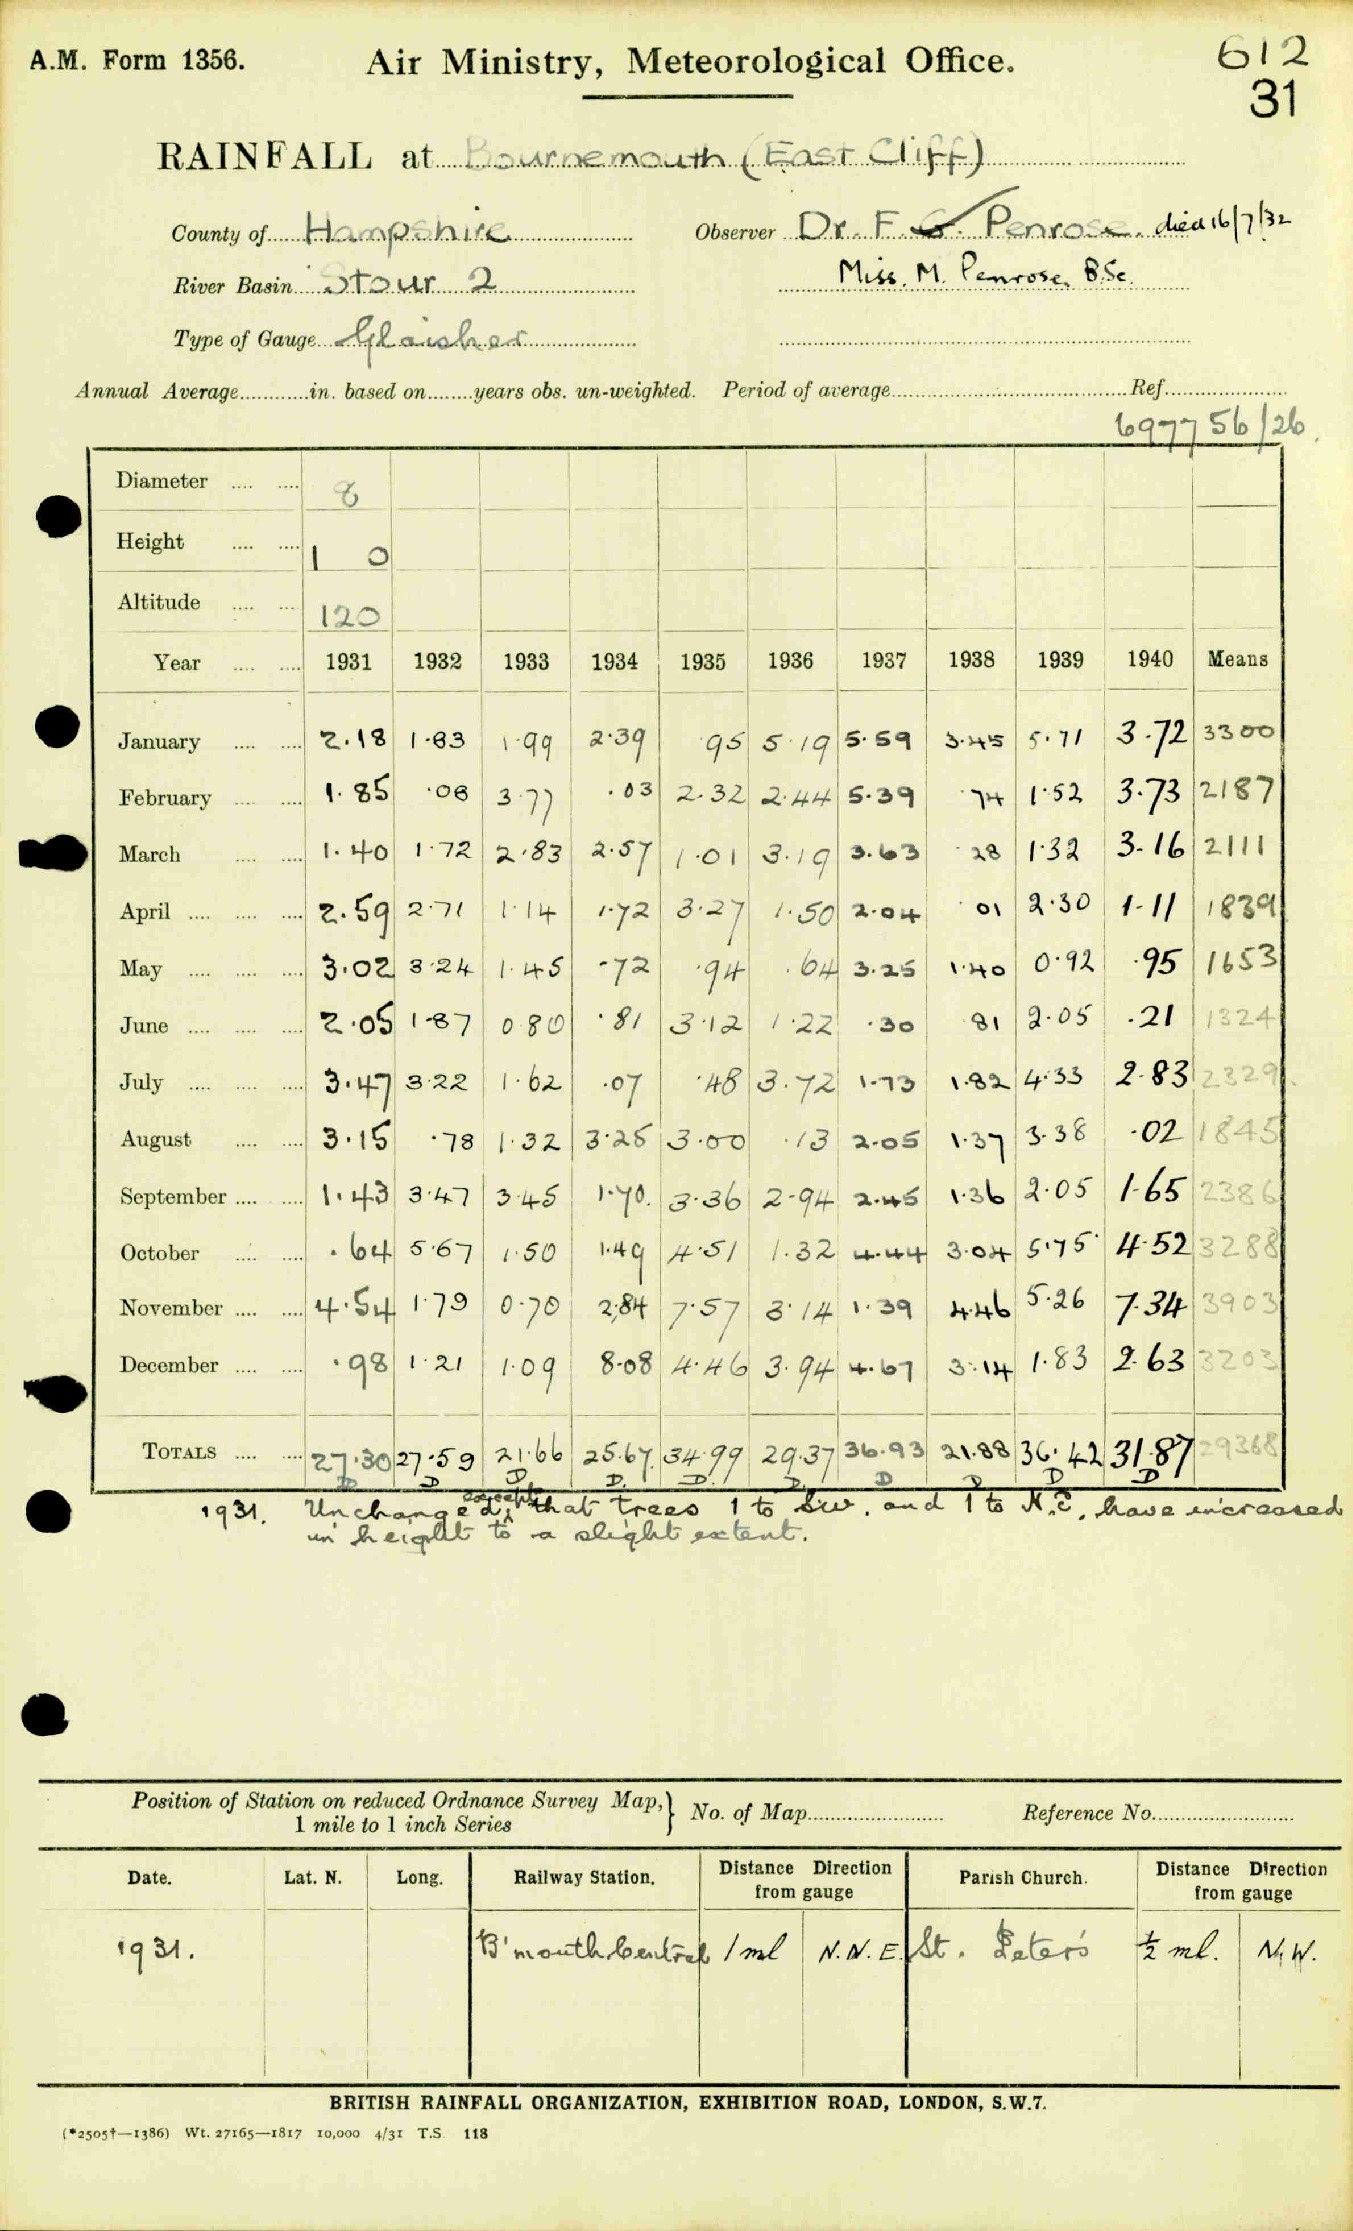 A.M. Form 1356. Air Ministry, Meteorological Office. 612
31
RAINFALL at Bournemouth (East Cliff)
County of Hampshire Observer Dr. F. G. Penrose. died 16/7/32
River Basin Stour 2 Miss. M. Penrose, B.Sc.
Type of Gauge Glaisher
Annual Average............in. based on........years obs. un-weighted. Period of average........................................Ref.....................
697756/26
Diameter .... .... 8
Height .... .... 1 0
Altitude .... .... 120
Year .... .... 1931 1932 1933 1934 1935 1936 1937 1938 1939 1940 Means
January .... .... 2.18 1.83 1.99 2.39 .95 5.19 5.59 3.45 5.71 3.72 3300
February .... .... 1.85 .08 3.77 .03 2.32 2.44 5.39 .74 1.52 3.73 2187
March .... .... 1.40 1.72 2.83 2.57 1.01 3.19 3.63 .28 1.32 3.16 2111
April .... .... .... 2.59 2.71 1.14 1.72 3.27 1.50 2.04 .01 2.30 1.11 1839
May .... .... .... 3.02 3.24 1.45 .72 .94 .64 3.25 1.40 0.92 .95 1653
June .... .... .... 2.05 1.87 0.80 .81 3.12 1.22 .30 .81 2.05 .21 1324
July .... .... .... 3.47 3.22 1.62 .07 .48 3.72 1.73 1.82 4.33 2.83 2329
August .... .... 3.15 .78 1.32 3.25 3.00 .13 2.05 1.37 3.38 .02 1845
September .... .... 1.43 3.47 3.45 1.70. 3.36 2.94 2.45 1.36 2.05 1.65 2386
October .... .... .64 5.67 1.50 1.49 4.51 1.32 4.44 3.04 5.75 4.52 3288
November .... .... 4.54 1.79 0.70 2.84 7.57 3.14 1.39 4.46 5.26 7.34 3903
December .... .... .98 1.21 1.09 8.08 4.46 3.94 4.67 3.14 1.83 2.63 3203
TOTALS .... .... 27.30 27.59 21.66 25.67 34.99 29.37 36.93 21.88 36.42 31.87 29368
D D D D. D. D. D D D D
1931. Unchanged, except that trees 1 to S.W. and 1 to N.E. have increased
in height to a slight extent.
Position of Station on reduced Ordnance Survey Map, } No. of Map........................ Reference No.........................
1 mile to 1 inch Series
Date. Lat. N. Long. Railway Station. Distance Direction from gauge Parish Church. Distance Direction from gauge
1931. B'mouth Central 1 ml N.N.E. St. Peter's ½ ml. N.W.
BRITISH RAINFALL ORGANIZATION, EXHIBITION ROAD, LONDON, S.W.7.
(*2505†—1386) Wt. 27165—1817 10,000 4/31 T.S. 118